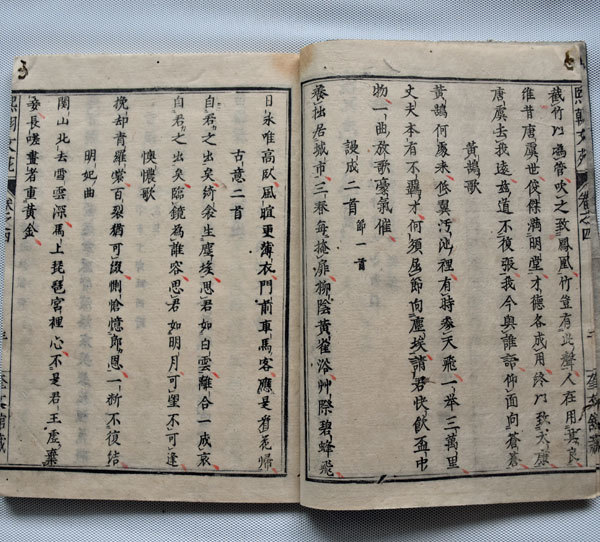 熙朝文苑 卷之四
截竹乃為管吹之致鳳凰竹豈有此聲人在用其良
維昔唐虞世俊傑滿明堂才德各成用終乃致太康
唐虞去我遠為道不復張我今與誰語仰面向蒼蒼
黃鵠歌
黃鵠何處來低翼污池裡有時參天飛一舉三萬里
丈夫本有不羈才何須屈節向塵埃請君快飲盃中
物一曲放歌憂氣催
謾成二首 節一首
養拙居城市三春每掩扉柳陰黃雀浴艸際碧蜂飛
日永唯高臥風暄更薄衣門前車馬客應是看花歸
古意二首
自君之出矣綺衾生塵埃思君如白雲離合一成哀
自君之出矣臨鏡為誰容思君如明月可望不可逢
懊懷歌
挽却肯羅裳百裂猶可綴惻愴憶郎恩一斷不復結
明妃曲
關山北去雪雲深馬上琵琶宮裡心不是君王虛棄
妾長嗟畫者重黃金
熙朝文苑 卷之四